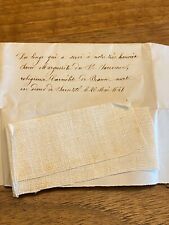 Du linge qui a servi à notre très honorée
Sœur Marguerite du St Sacrement,
religieuse Carmélite de Beaune, morte
en odeur de Sainteté le 26 Mai 1648